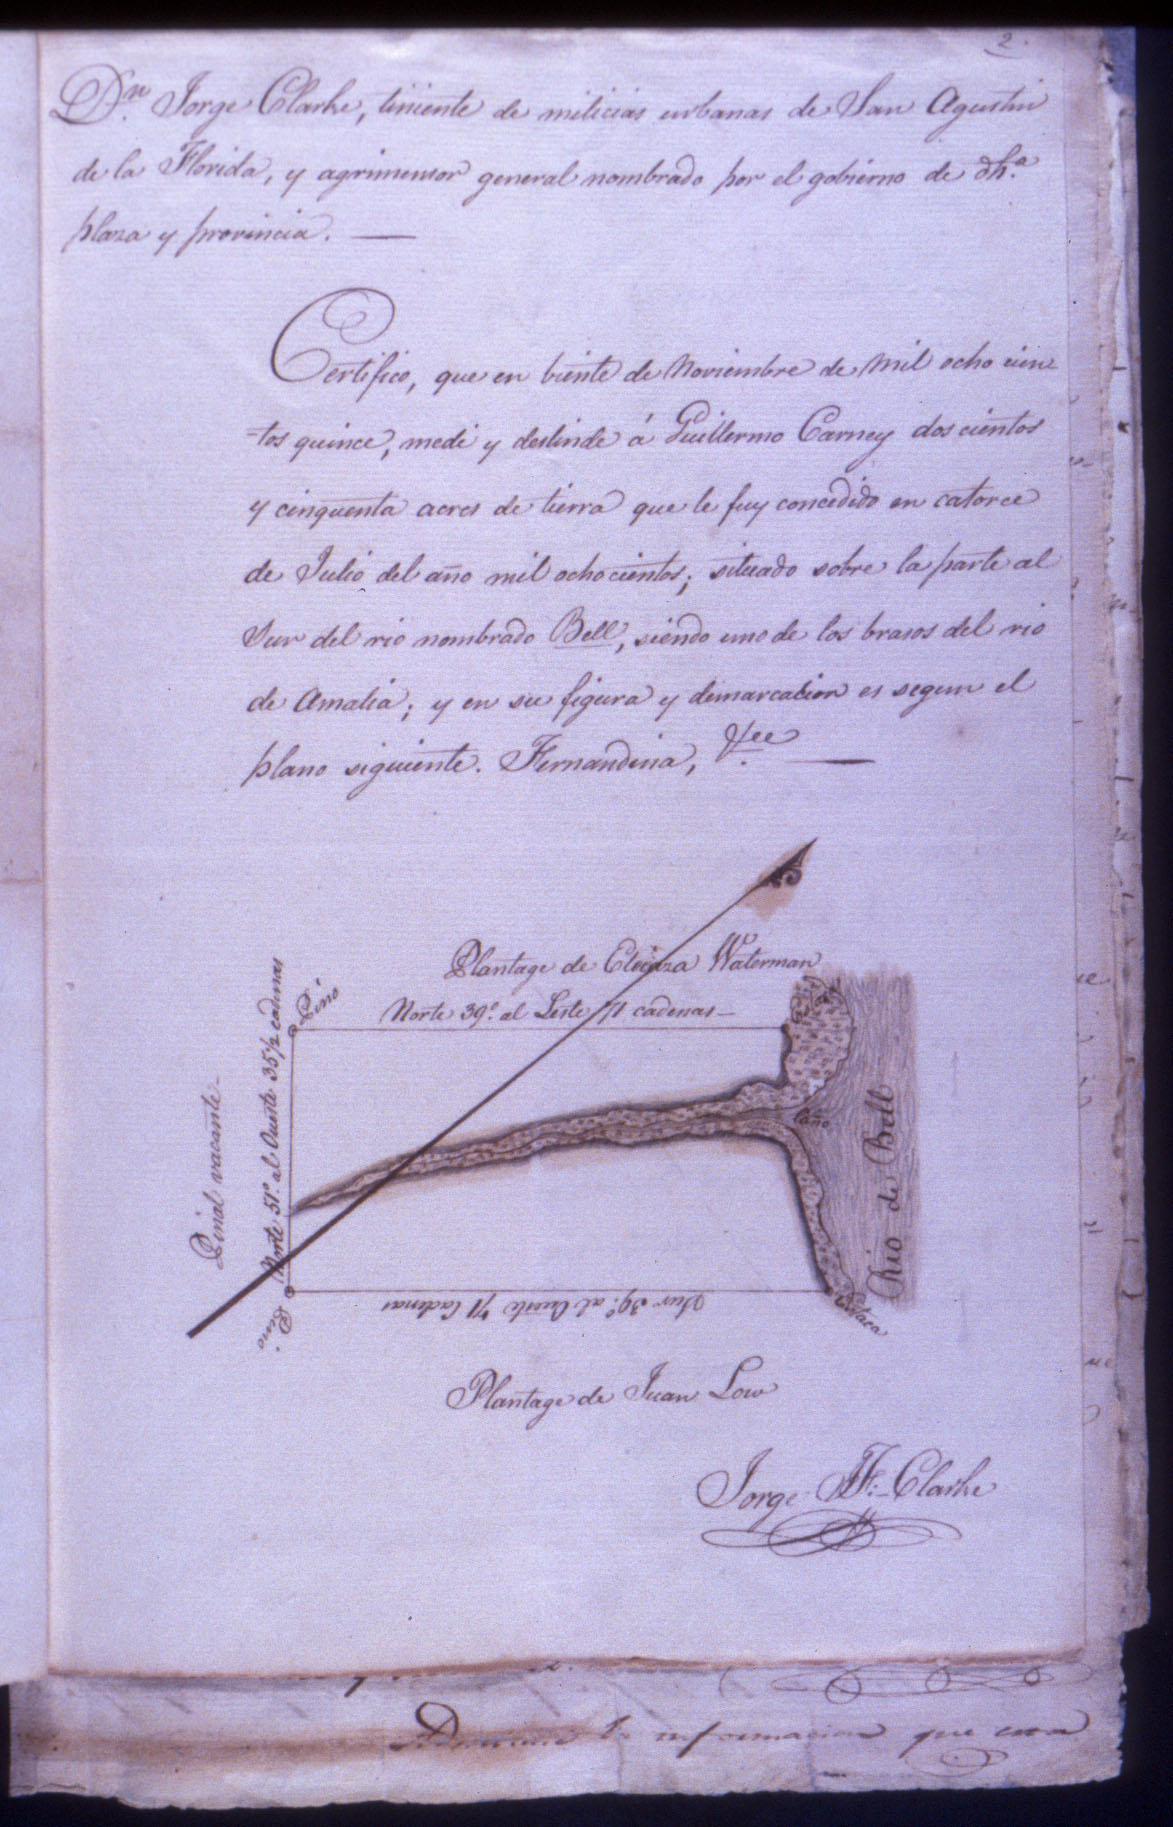 2.
Dn. Jorge Clarke, tiniente de milicias urbanas de San Agustin
de la Florida, y agrimensor general nombrado por el gobierno de dha.
plaza y provincia. —
Certifico, que en biente de Noviembre de mil ocho cien-
-tos quince, medi y deslinde á Guillermo Carney dos cientos
y cinquenta acres de tierra que le fuy concedido en catorce
de Julio del año mil ochocientos; situado sobre la parte al
Sur del rio nombrado Bell, siendo uno de los brasos del rio
de Amalia; y en su figura y demarcacion es segun el
plano siguiente. Fernandina, —
Plantage de Waterman
Norte 39º. al Leste 71 cadenas —
Pino
Norte 51º. al Oueste 35 1/2 cadenas
Pinal vacante
Caño
Rio de Bell
Pino.
Sur 39º. al Oueste 71 Cadenas
Estaca
Plantage de Juan Low
Jorge J. F. Clarke
informacion que